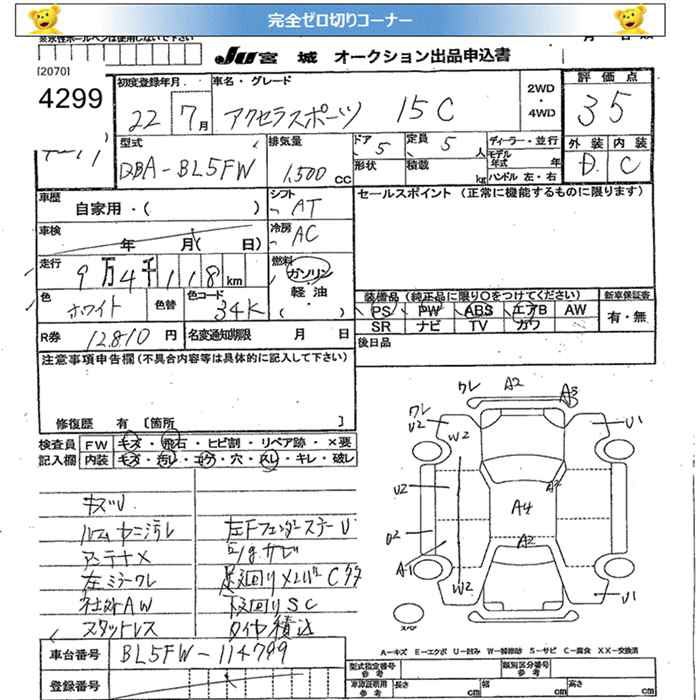 完全ゼロ切りコーナー
JU宮城 オークション出品申込書
[2070]
4299
初度登録年月 22 7月
車名・グレード アクセラスポーツ 15C
2WD・4WD
評価点 35
外装 D 内装 C
型式 DBA-BL5FW
排気量 1,500cc
ドア 5
定員 5人
形状
積載 kg
ディーラー・並行
モデル年式 年
ハンドル 左・右
車歴 自家用・( )
シフト AT
セールスポイント (正常に機能するものに限ります)
車検 年 月( 日)
冷房 AC
走行 9万4千118km
燃料 ガソリン・軽油・( )
色 ホワイト 色替 色コード 34K
装備品(純正品に限り○をつけてください)
新車保証書 有・無
PS PW ABS エアB AW
SR ナビ TV カワ
R券 12,810円 名変通知期限 月 日
後日品
注意事項申告欄(不具合内容等は具体的に記入して下さい)
修復歴 有 [箇所 ]
検査員記入欄
FW キズ・飛石・ヒビ割・リペア跡・×要
内装 キズ・汚レ・コゲ・穴・スレ・キレ・破レ
キズU
ルームヤニ汚レ 左FフェンダーステーU
アンテナX
左ミラーワレ
社外AW 下回りSC
スタッドレス タイヤ積込
ワレ A2 A3
ワレ U2 W2 U1
U2 A4
U2 A2
A1 W2 U1
スペア
A-キズ E-エクボ U-凹み W-補修跡 S-サビ C-腐食 XX-交換済
車台番号 BL5FW-114799
型式指定番号 参考
類別区分番号 参考
登録番号
車庫証明用 参考 長さ cm 幅 cm 高さ cm